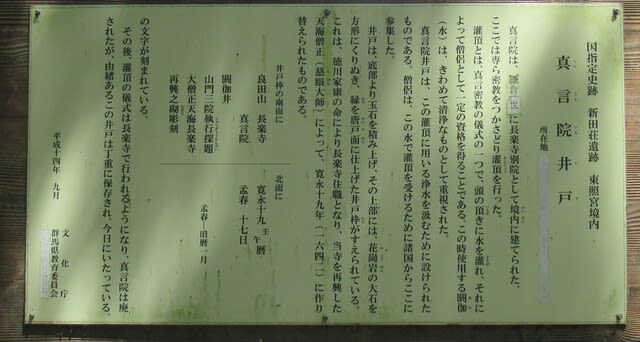 国指定史跡　新田荘遺跡　東照宮境内
真言院井戸
所在地
真言院は、世に長楽寺別院として境内に建てられた。
ここでは専ら密教をつかさどり灌頂を行った。
灌頂とは、真言密教の儀式の一つで、頭の頂きに水を灌れ、それに
よって僧侶として一定の資格を得ることである。この時使用する閼伽
（水）は、きわめて清浄なものとして重視された。
真言院井戸は、この灌頂に用いる浄水を汲むために設けられた
ものである。僧侶は、この水で灌頂を受けるために諸国からここに
参集した。
井戸は、底部より玉石を積み上げ、その上部には、花崗岩の大石を
方形にくりぬき、縁を唐戸面に仕上げた井戸枠がすえられている。
これは、徳川家康の命により長楽寺住職となり、当寺を再興した
天海僧正（慈眼大師）によって、寛永十九年（一六四二）に作り
替えられたものである。
井戸枠の南面に　北面に
良田山　長楽寺　寛永十九壬午暦
閼伽井　真言院　孟春　十七日
山門三院執行探題　孟春―旧暦一月
大僧正天海長楽寺
再興之砌彫刻
の文字が刻まれている。
その後、灌頂の儀式は長楽寺で行われるようになり、真言院は廃
されたが、由緒あるこの井戸は丁重に保存され、今日にいたっている。
平成十四年　九月
文化庁
群馬県教育委員会